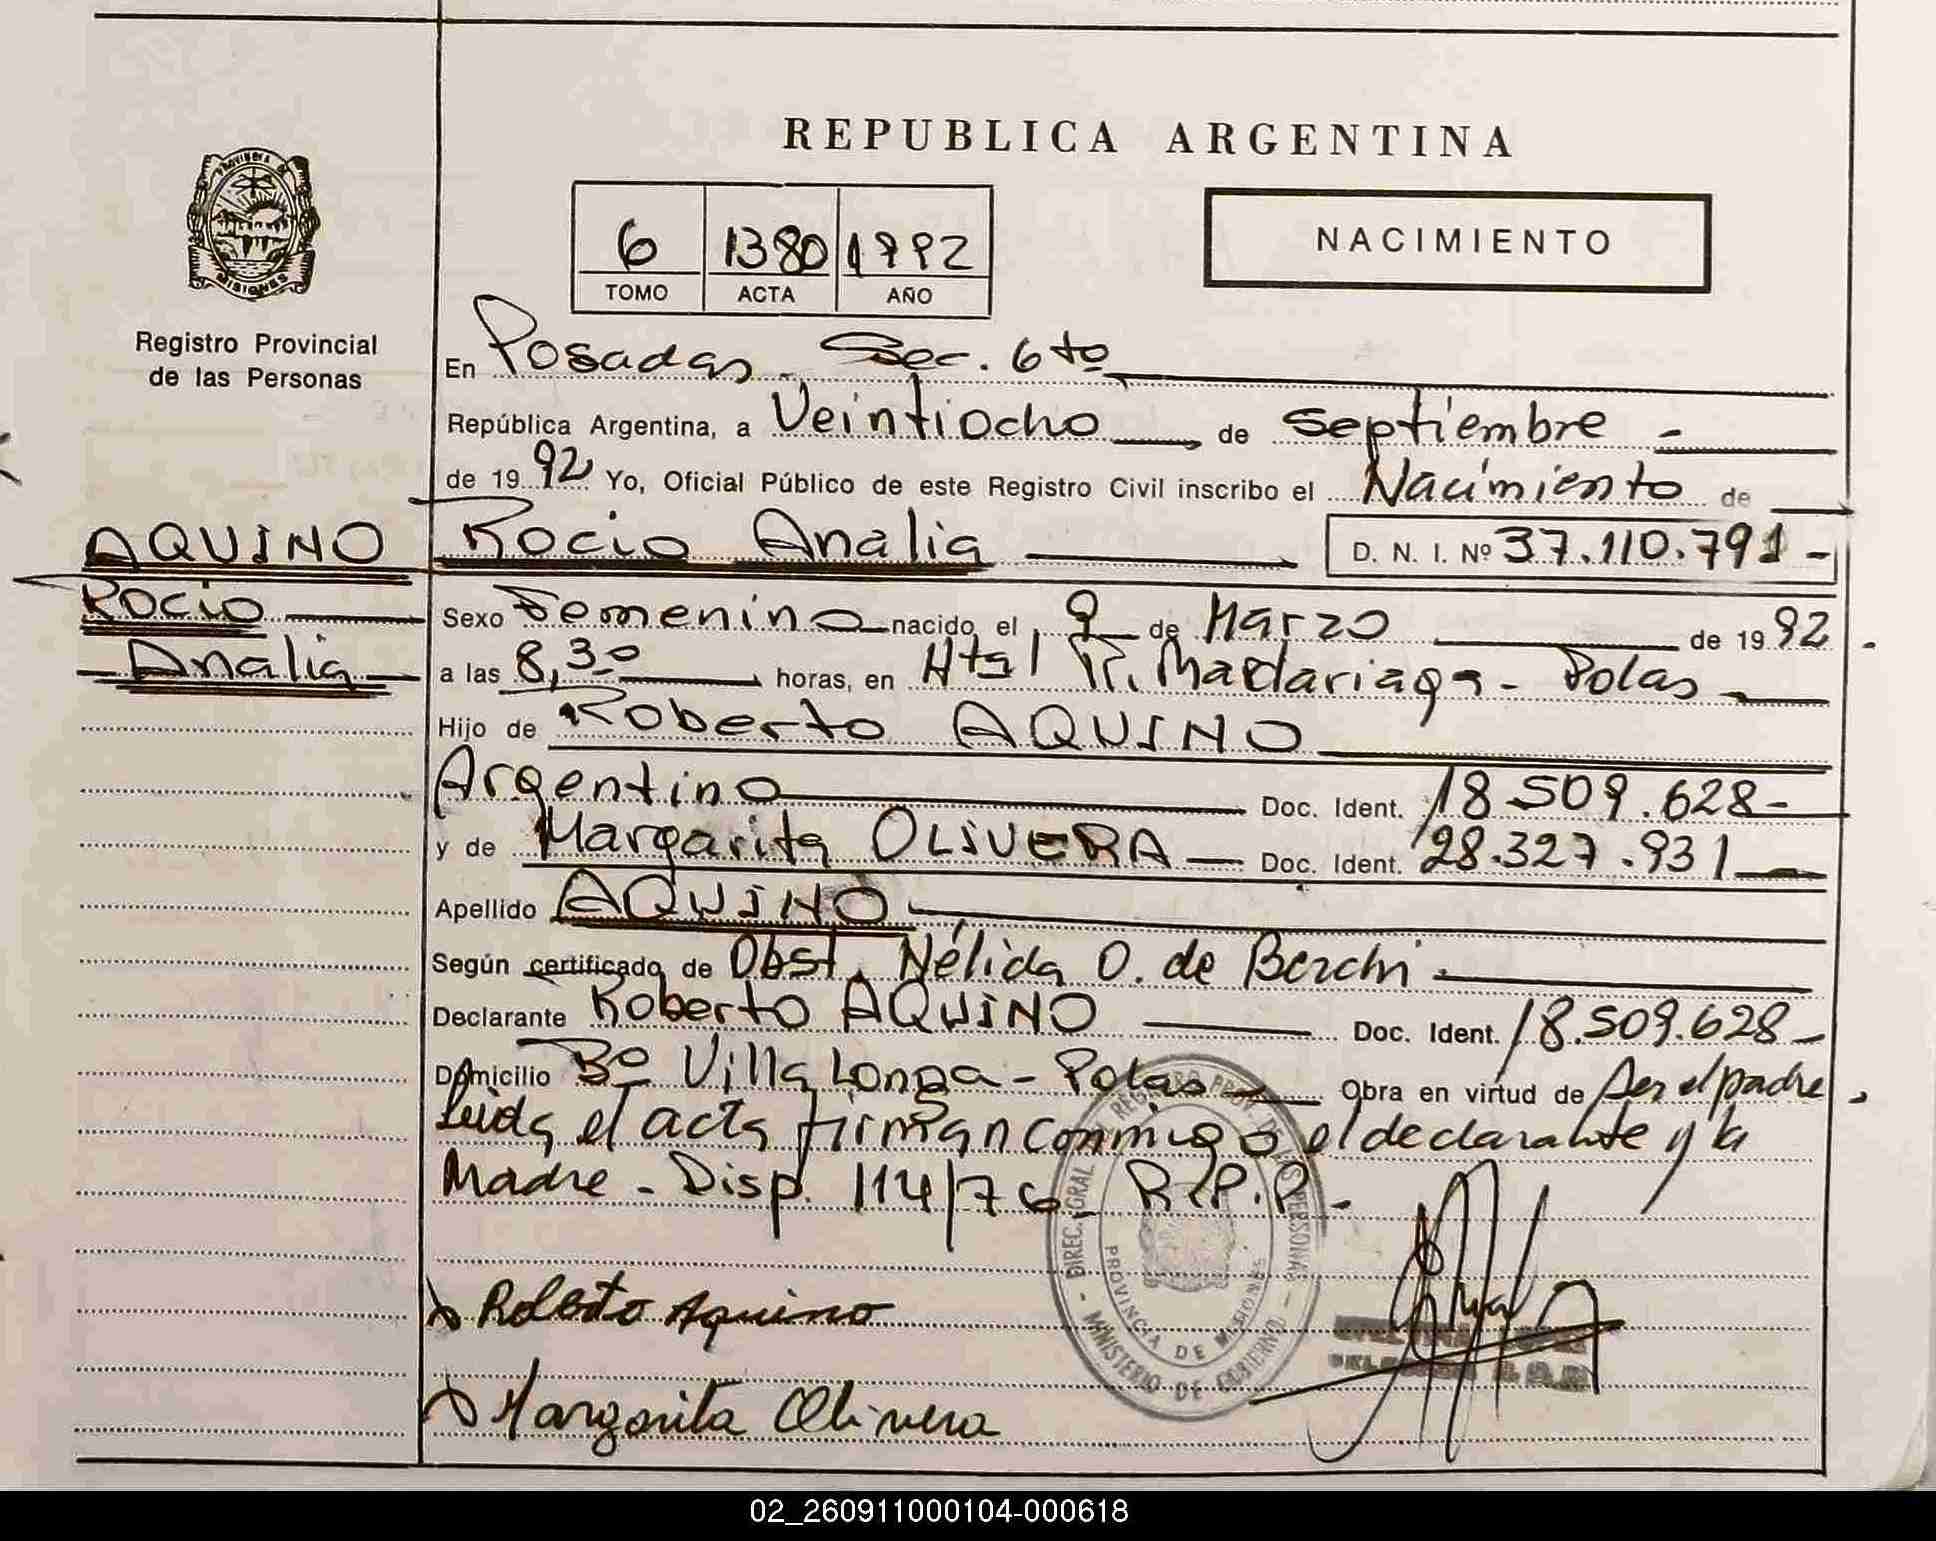 REPUBLICA ARGENTINA
6 1380 1992
TOMO ACTA AÑO
NACIMIENTO
PROVINCIA DE MISIONES
Registro Provincial
de las Personas
En Posadas - Sec. 6to
República Argentina, a Veintiocho de Septiembre -
de 1992 Yo, Oficial Público de este Registro Civil inscribo el Nacimiento de
AQUINO Rocio Analia D. N. I. Nº 37.110.791 -
Rocio
Analia
Sexo Femenino nacido el 9 de Marzo de 1992
a las 8,30 horas, en Htal R. Madariaga - Posdas
Hijo de Roberto AQUINO
Argentino Doc. Ident. 18.509.628 -
y de Margarita OLIVERA Doc. Ident. 28.327.931
Apellido AQUINO
Según certificado de Obst. Nélida O. de Berchi
Declarante Roberto AQUINO Doc. Ident. 18.509.628 -
Domicilio Bº Villa Longa - Pdas Obra en virtud de ser el padre,
Leida el acta firman conmigo el declarante y la
Madre - Disp. 114/76 R.P.P. -
Roberto Aquino
Margarita Olivera
DIREC. GRAL REGISTRO PROV. DE LAS PERSONAS - MINISTERIO DE GOBIERNO -
PROVINCIA DE MISIONES
02_260911000104-000618